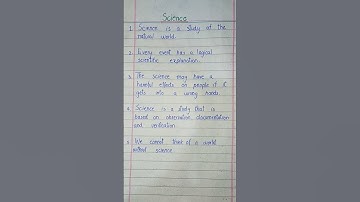 Science
1. Science is a study of the
natural world.
2. Every event has a logical
scientific explanation.
3. The science may have a
harmful effects on people if it
gets into a wrong hands.
4. Science is a study that is
based on observation, documentation
and verification
5. We cannot think of a world
without science